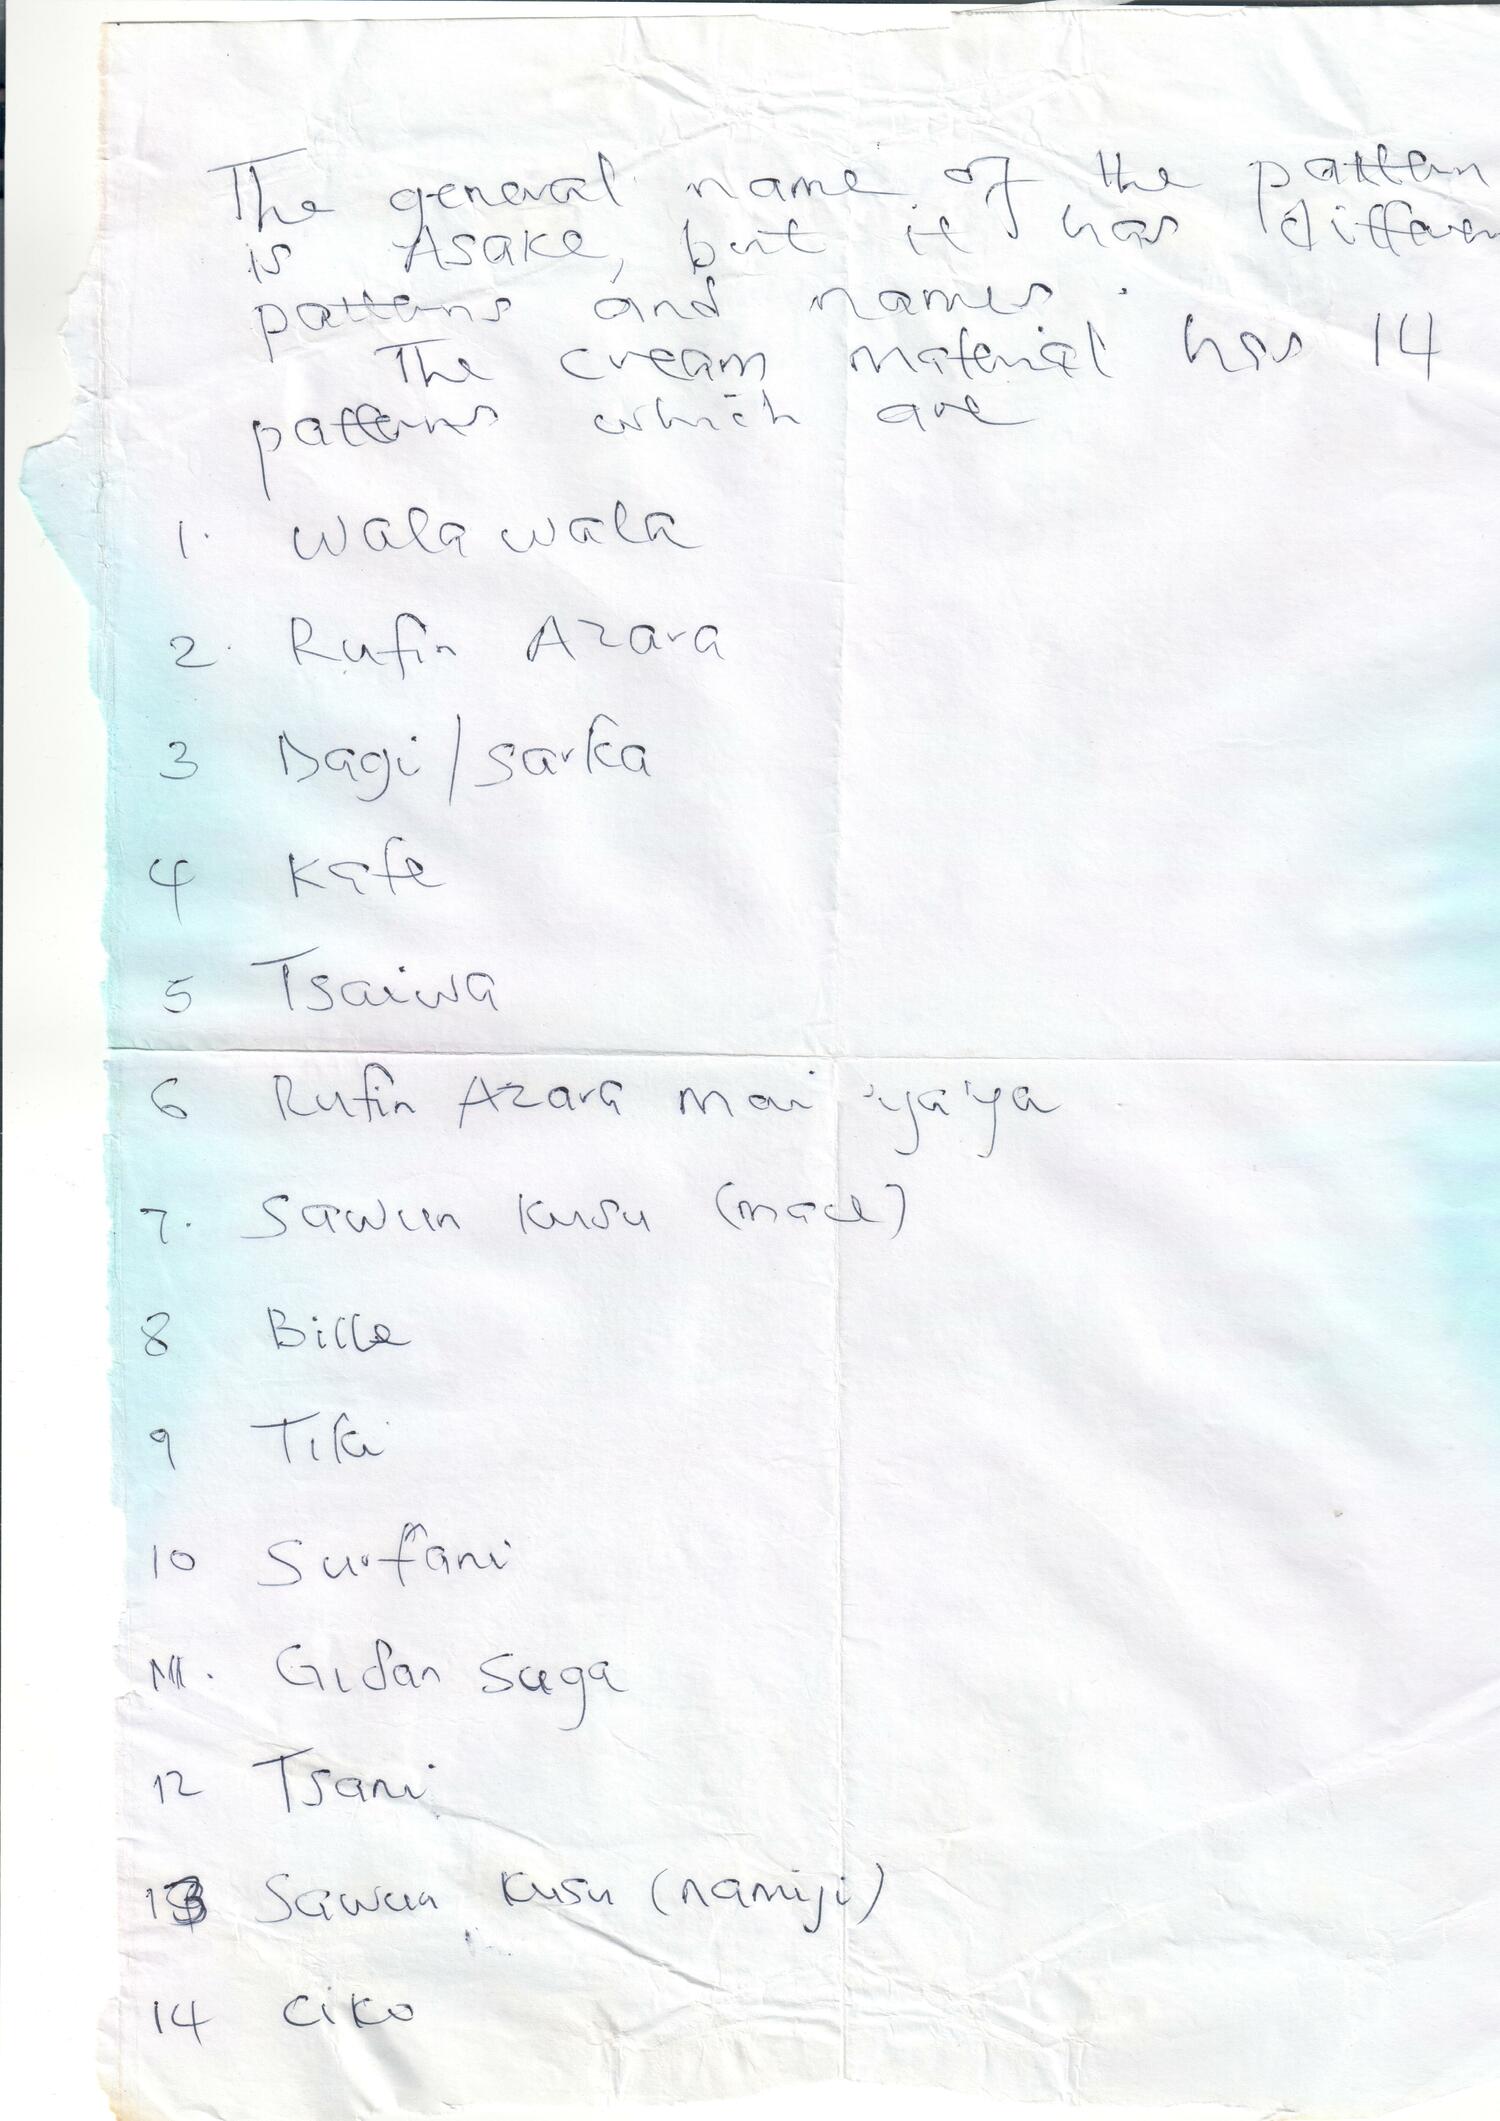 The general name of the pattern
is Asake, but it has differen
pattens and names.
The cream material has 14
patterns which are
1. wala wala
2. Rufin Azara
3 Dagi/sarka
4 Kafe
5 Tsaiwa
6 Rufin Azara mai 'ya'ya
7. Sawun Kusu (mace)
8 Bille
9 Tiki
10 Surfani
11. Gidan Saga
12 Tsani
13 Sawun Kusu (namiji)
14 Ciko